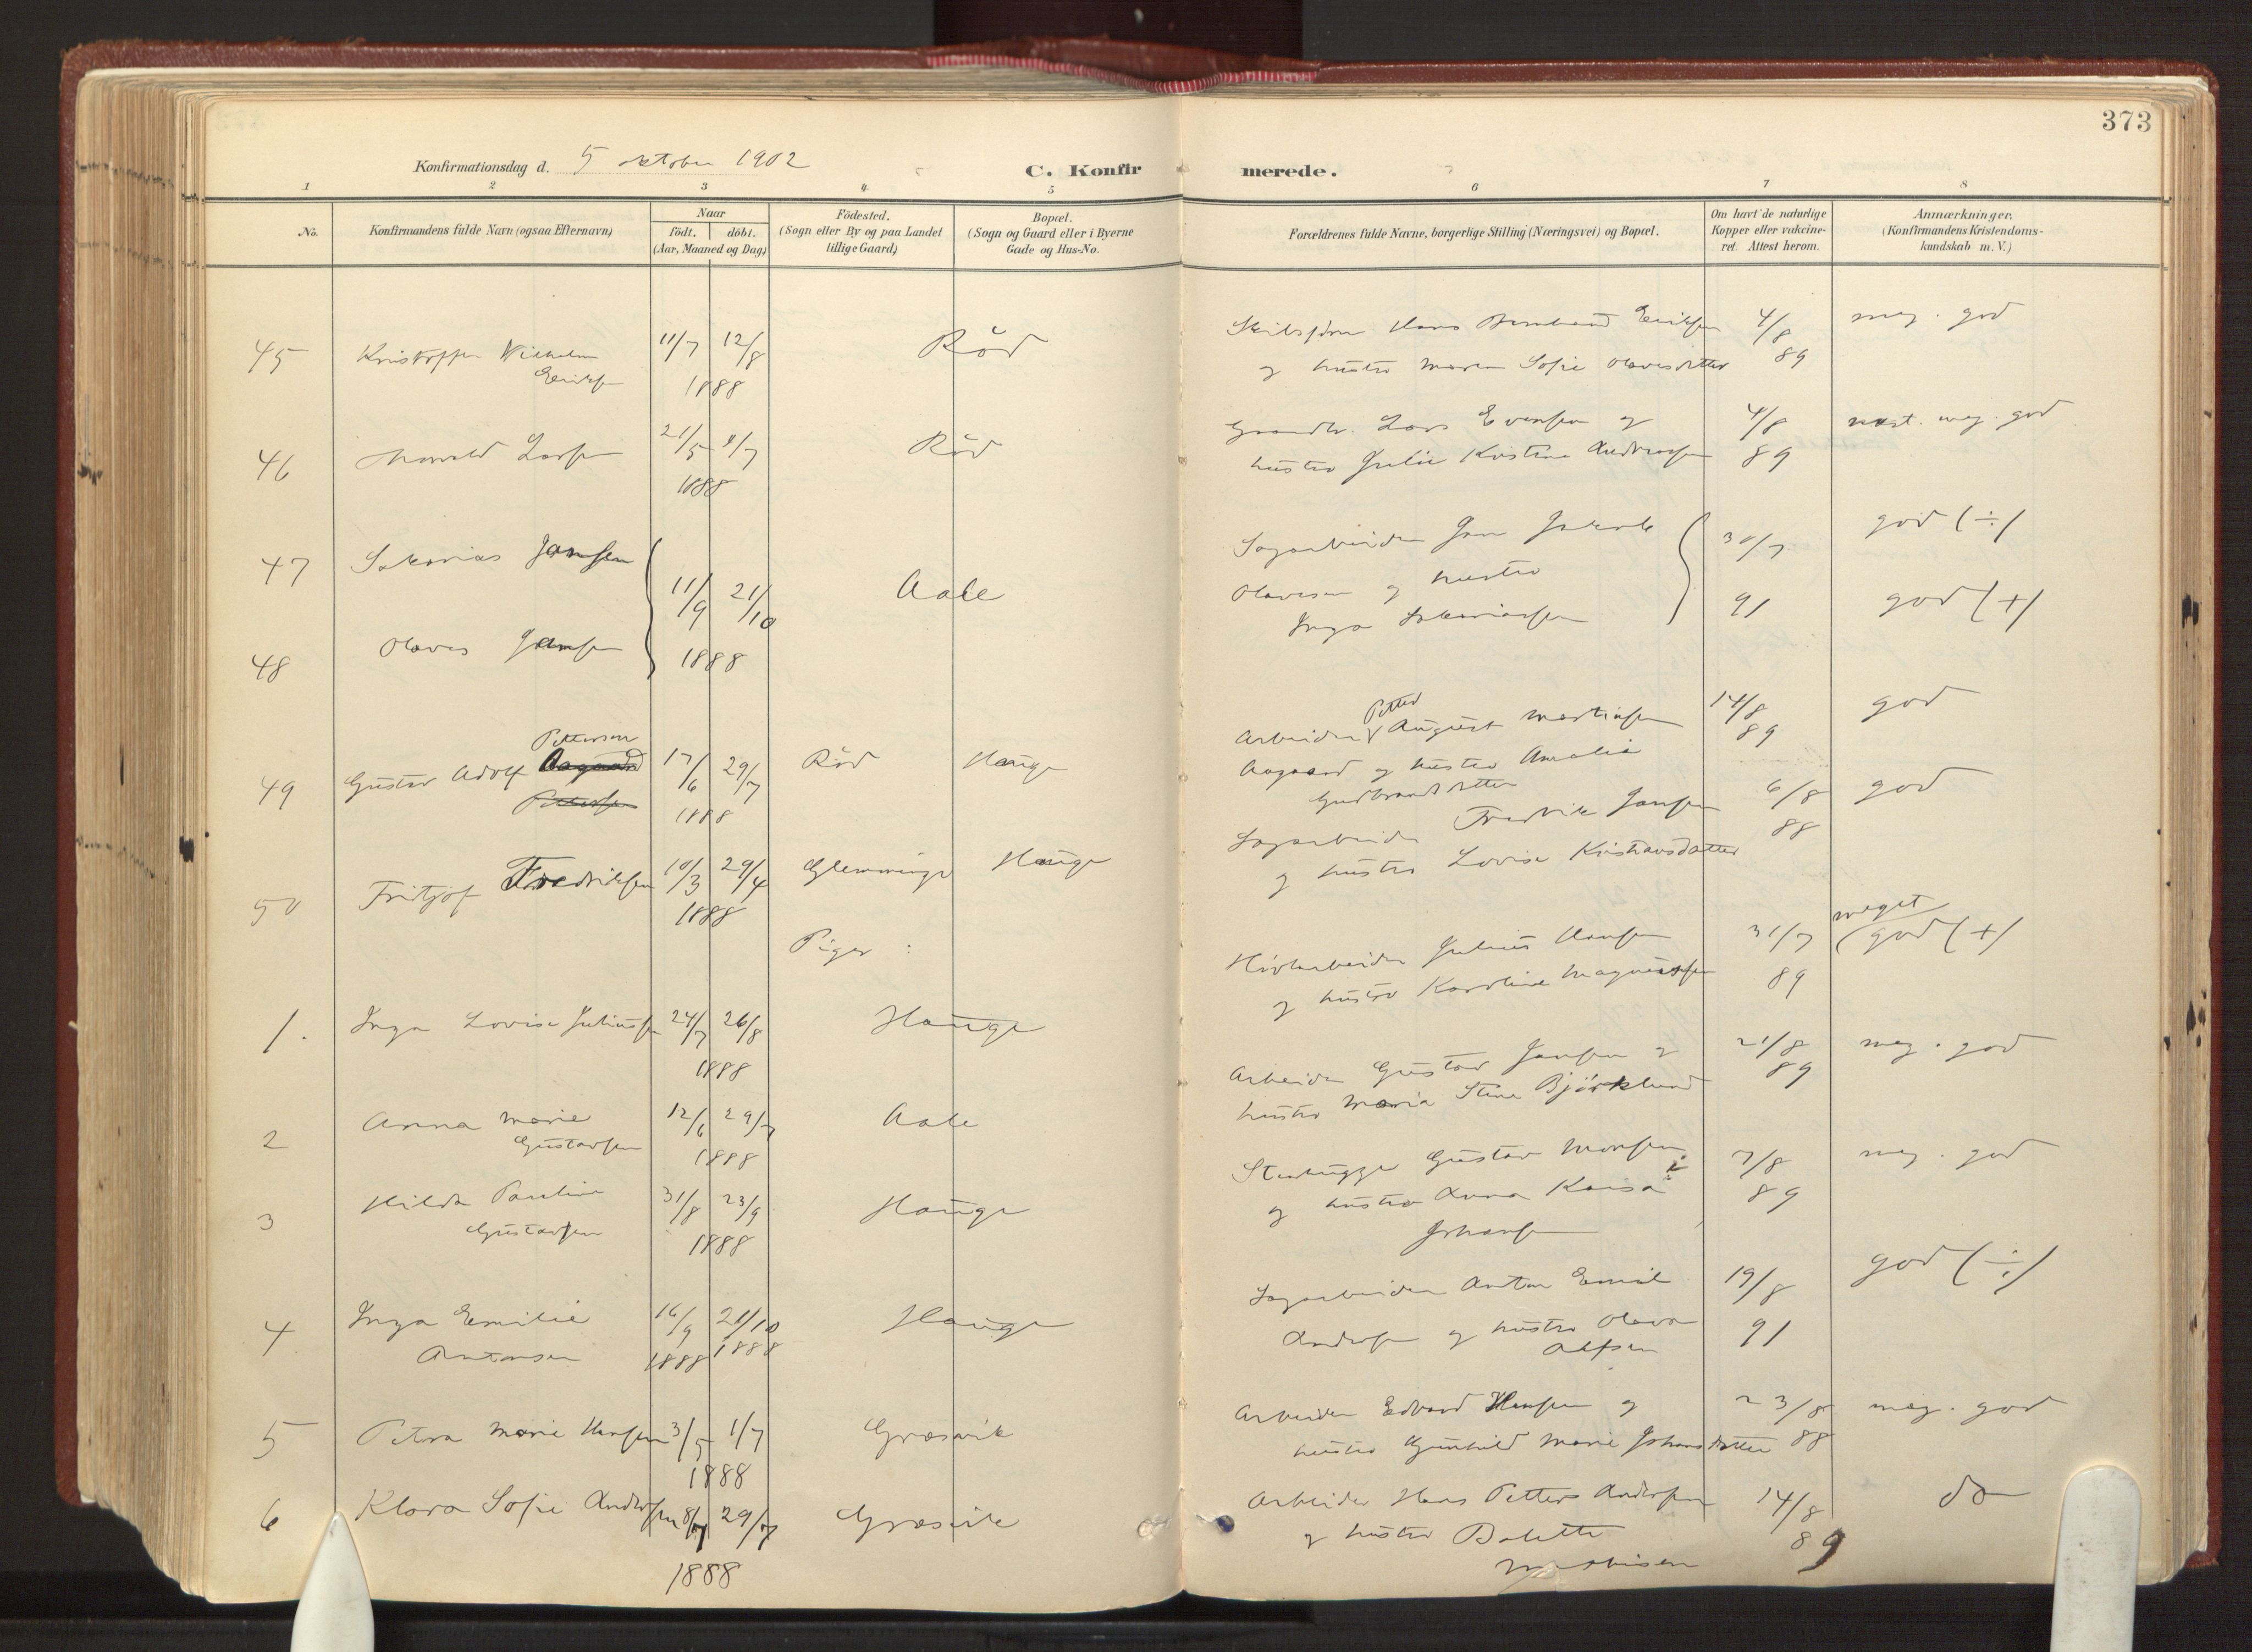 373
Konfirmationsdag d. 5 oktober 1902
C. Konfirmerede.
1 2 3 4 5 6 7 8
No.
Konfirmandens fulde Navn (ogsaa Efternavn)
Naar
födt. döbt.
(Aar, Maaned og Dag)
Födested.
(Sogn eller By og paa Landet
tillige Gaard)
Bopæl.
(Sogn og Gaard eller i Byerne
Gade og Hus-No.
Forældrenes fulde Navne, borgerlige Stilling (Næringsvei) og Bopæl.
Om havt de naturlige
Kopper eller vakcine-
ret. Attest herom.
Anmærkninger.
(Konfirmandens Kristendoms-
kundskab m. V.)
45 Kristoffer Vilhelm 11/7 12/8 Röd Hans Bernhard Eriksen 4/8 meg. god
Eriksen 1888 og hustru Maren Sofie Olavesdatter 89
46 Thorvald Larsen 21/5 1/7 Röd Gaardbr. Lars Evensen og 4/8 næst. meg. god
1888 hustru Julie Kristine Andreassen 89
47 Sakarias Jansen 11/9 21/10 Aale Sagarbeider Jan Jakob 30/7 god (÷)
Olavesen og hustru
48 Olaves Jansen 1888 Inga Sakariassen 91 god (+)
49 Gustav Adolf Aagaard Pettersen 17/6 29/7 Röd Hauge Arbeider Petter August Martinsen 14/8 god
Pettersen 1888 Aagaard og hustru Amalie 89
Gudbrandsdatter
50 Fritjof Fredriksen 10/3 29/4 Glemminge Hauge Sagarbeider Fredrik Jansen 6/8 god
1888 og hustru Lovise Kristiansdatter 88
Piger:
1. Inga Lovise Juliussen 24/7 26/8 Hauge Hövlarbeider Julius Hansen 31/7 meget god (+)
1888 og hustru Karoline Magnussen 89
2 Anna Marie 12/6 29/7 Aale Arbeider Gustav Jansen og 21/8 meg. god
Gustavsen 1888 hustru Maria Stine Björklund 89
3 Hilda Pauline 31/8 23/9 Hauge Stenhugger Gustav Monsen 7/8 meg. god
Gustavsen 1888 og hustru Anna Kaisa 89
Johansen
4 Inga Emilie 16/9 21/10 Hauge Sagarbeider Anton Emil 19/8 god (÷)
Antonsen 1888 1888 Andersen og hustru Olava 91
5 Petra Marie Hansen 3/5 1/7 Græsvik Arbeider Edvard Hansen og 23/8 meg. god
1888 hustru Gunhild Marie Johansdatter 88
6 Klara Sofie Andersen 8/7 29/7 Græsvik Arbeider Hans Petter Andersen 14/8 do
1888 og hustru Bolette 89